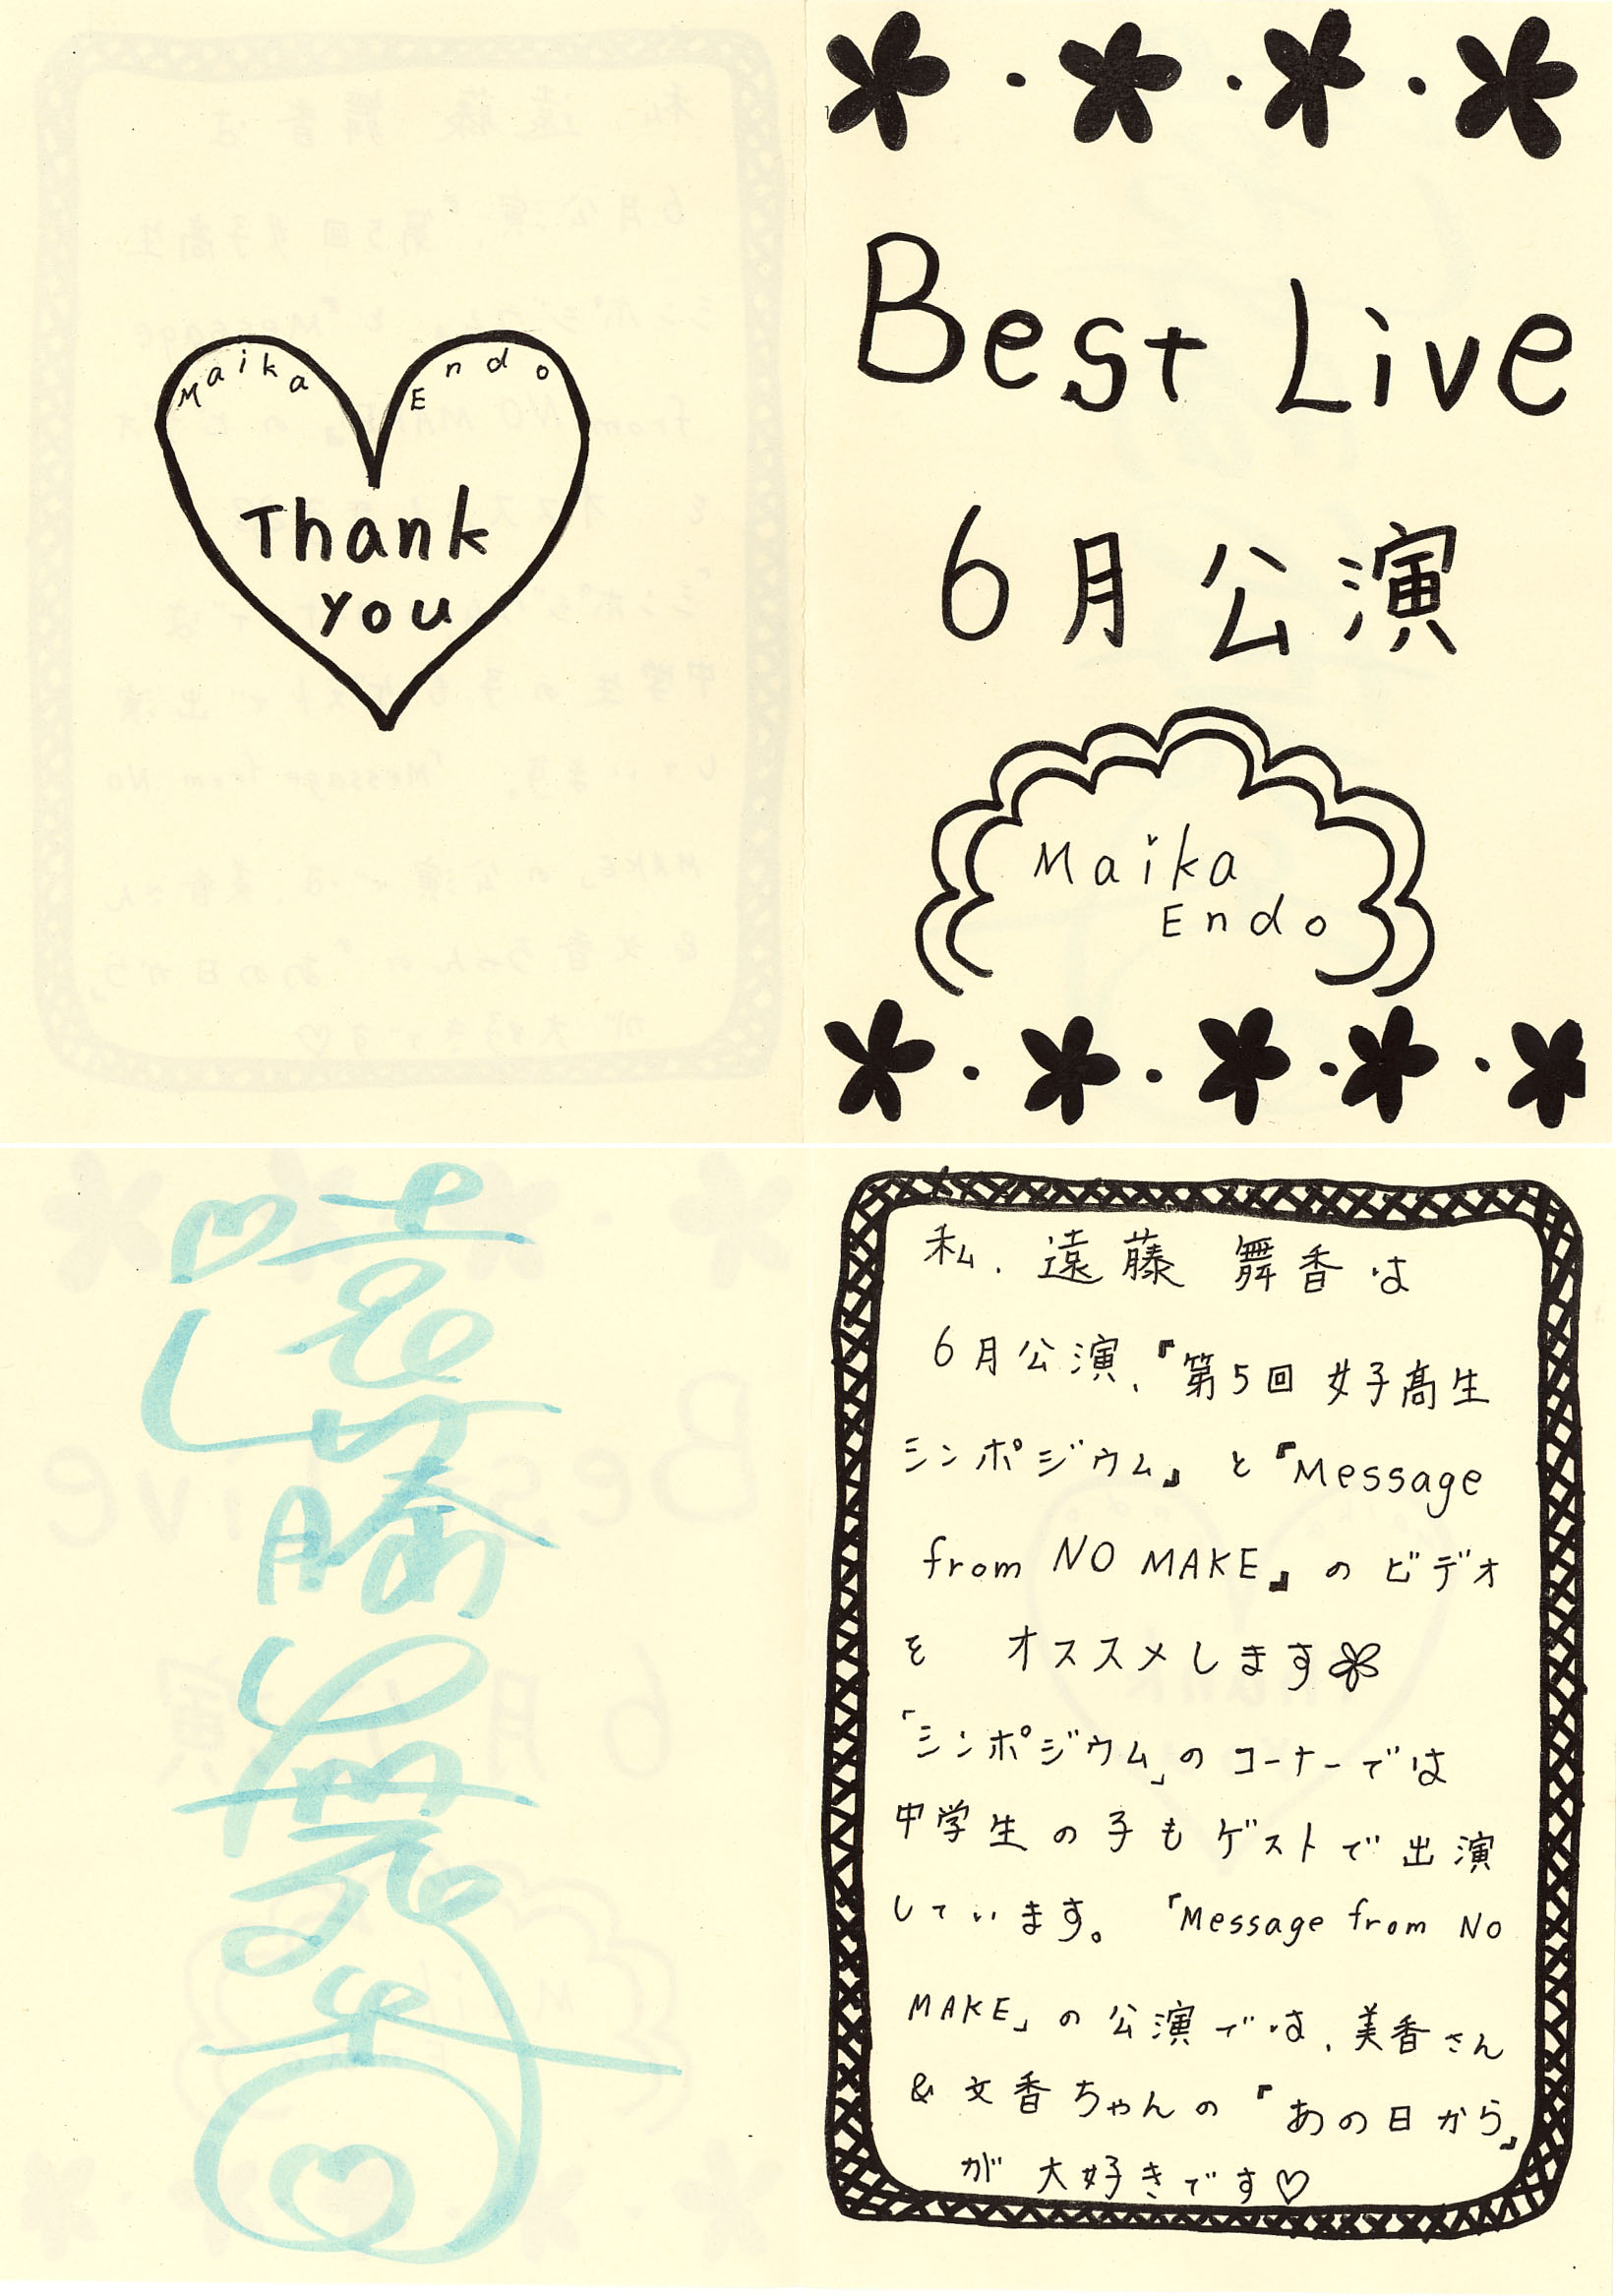 Maika Endo
Thank
you
Best Live
6月公演
Maika
Endo
遠藤舞香
私、遠藤 舞香は
6月公演、『第5回 女子高生
シンポジウム』と『Message
from NO MAKE』のビデオ
を オススメします
「シンポジウム」のコーナーでは
中学生の子もゲストで出演
しています。「Message from No
MAKE」の公演では、美香さん
& 文香ちゃんの『あの日から』
が大好きです♡